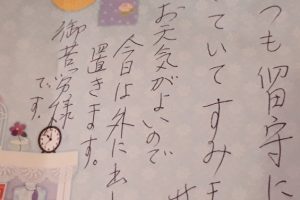 つも留守に
ていてすみま
お天気がよいので
今日は外に出し
置きます。
御苦労様
です。